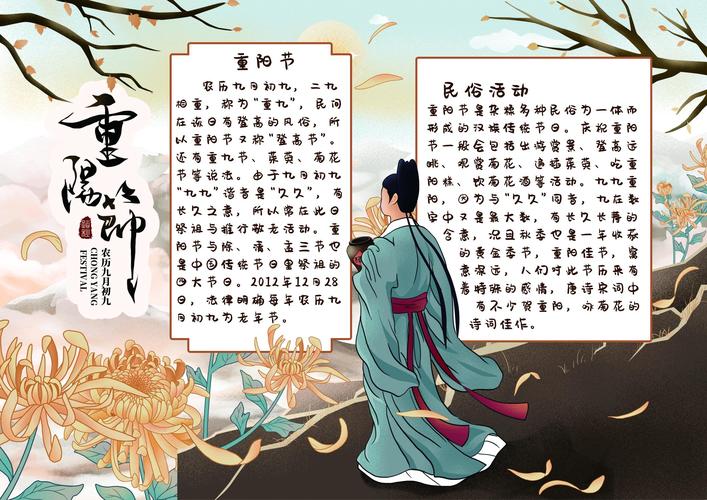 重陽節
農历九月初九
CHONG YANG
FESTIVAL
重阳节
农历九月初九，二九
相重，称为“重九”，民间
在该日有登高的风俗，所
以重阳节又称“登高节”。
还有重九节、茱萸、菊花
节等说法。由于九月初九
“九九”谐音是“久久”，有
长久之意，所以常在此日
祭祖与推行敬老活动。重阳
节与除、清、盂三节也
是中国传统节日里祭祖的
四大节日。2012年12月28
日，法律明确每年农历九
月初九为老年节。
民俗活动
重阳节是杂糅多种民俗为一体而
形成的汉族传统节日。庆祝重阳
节一般会包括出游赏景、登高远
眺、观赏菊花、遍插茱萸、吃重
阳糕、饮菊花酒等活动。九九重
阳，因为与“久久”同音，九在数
字中又是最大数，有长久长寿的
含意，况且秋季也是一年收获
的黄金季节，重阳佳节，寓
意深远，人们对此节历来有
着特殊的感情，唐诗宋词中
有不少贺重阳，咏菊花的
诗词佳作。